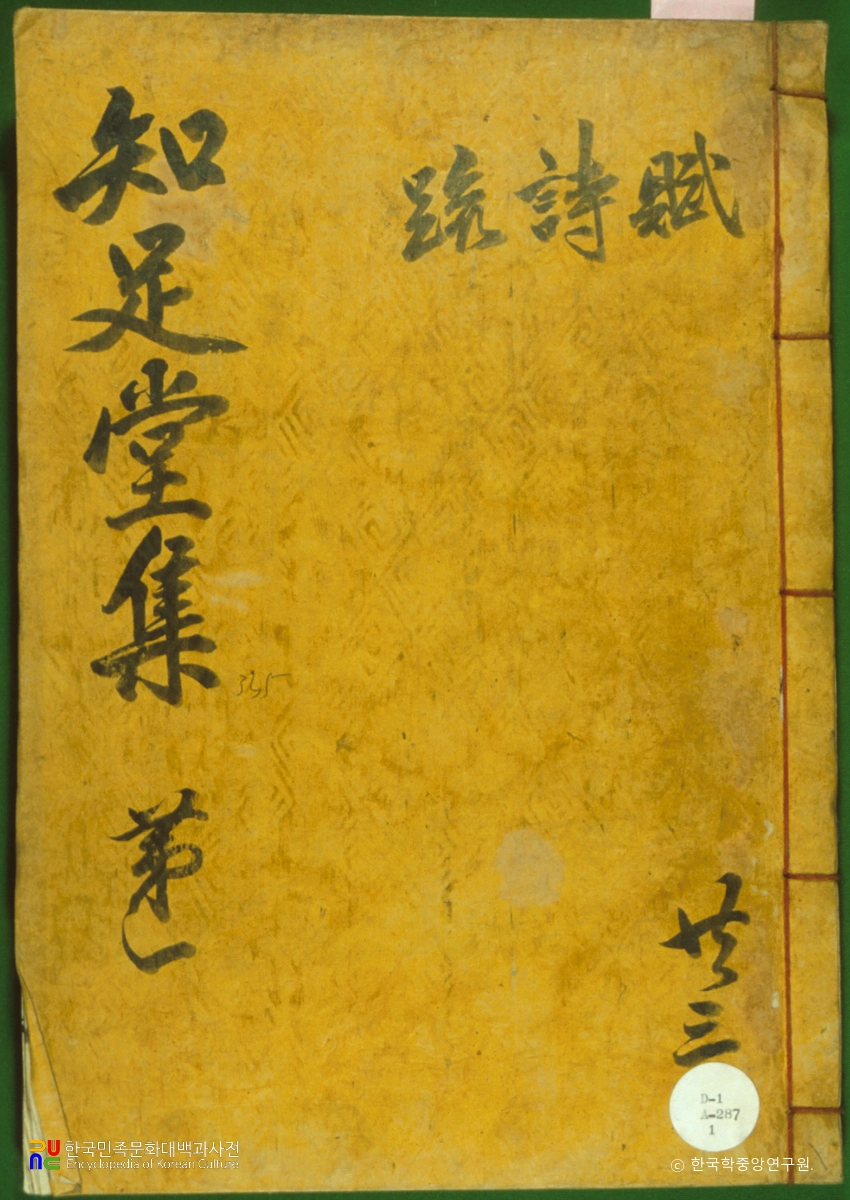 賦
詩
疏
知足堂集 第一
345
共三
D-1
A-287
1
한국민족문화대백과사전
Encyclopedia of Korean Culture
© 한국학중앙연구원.